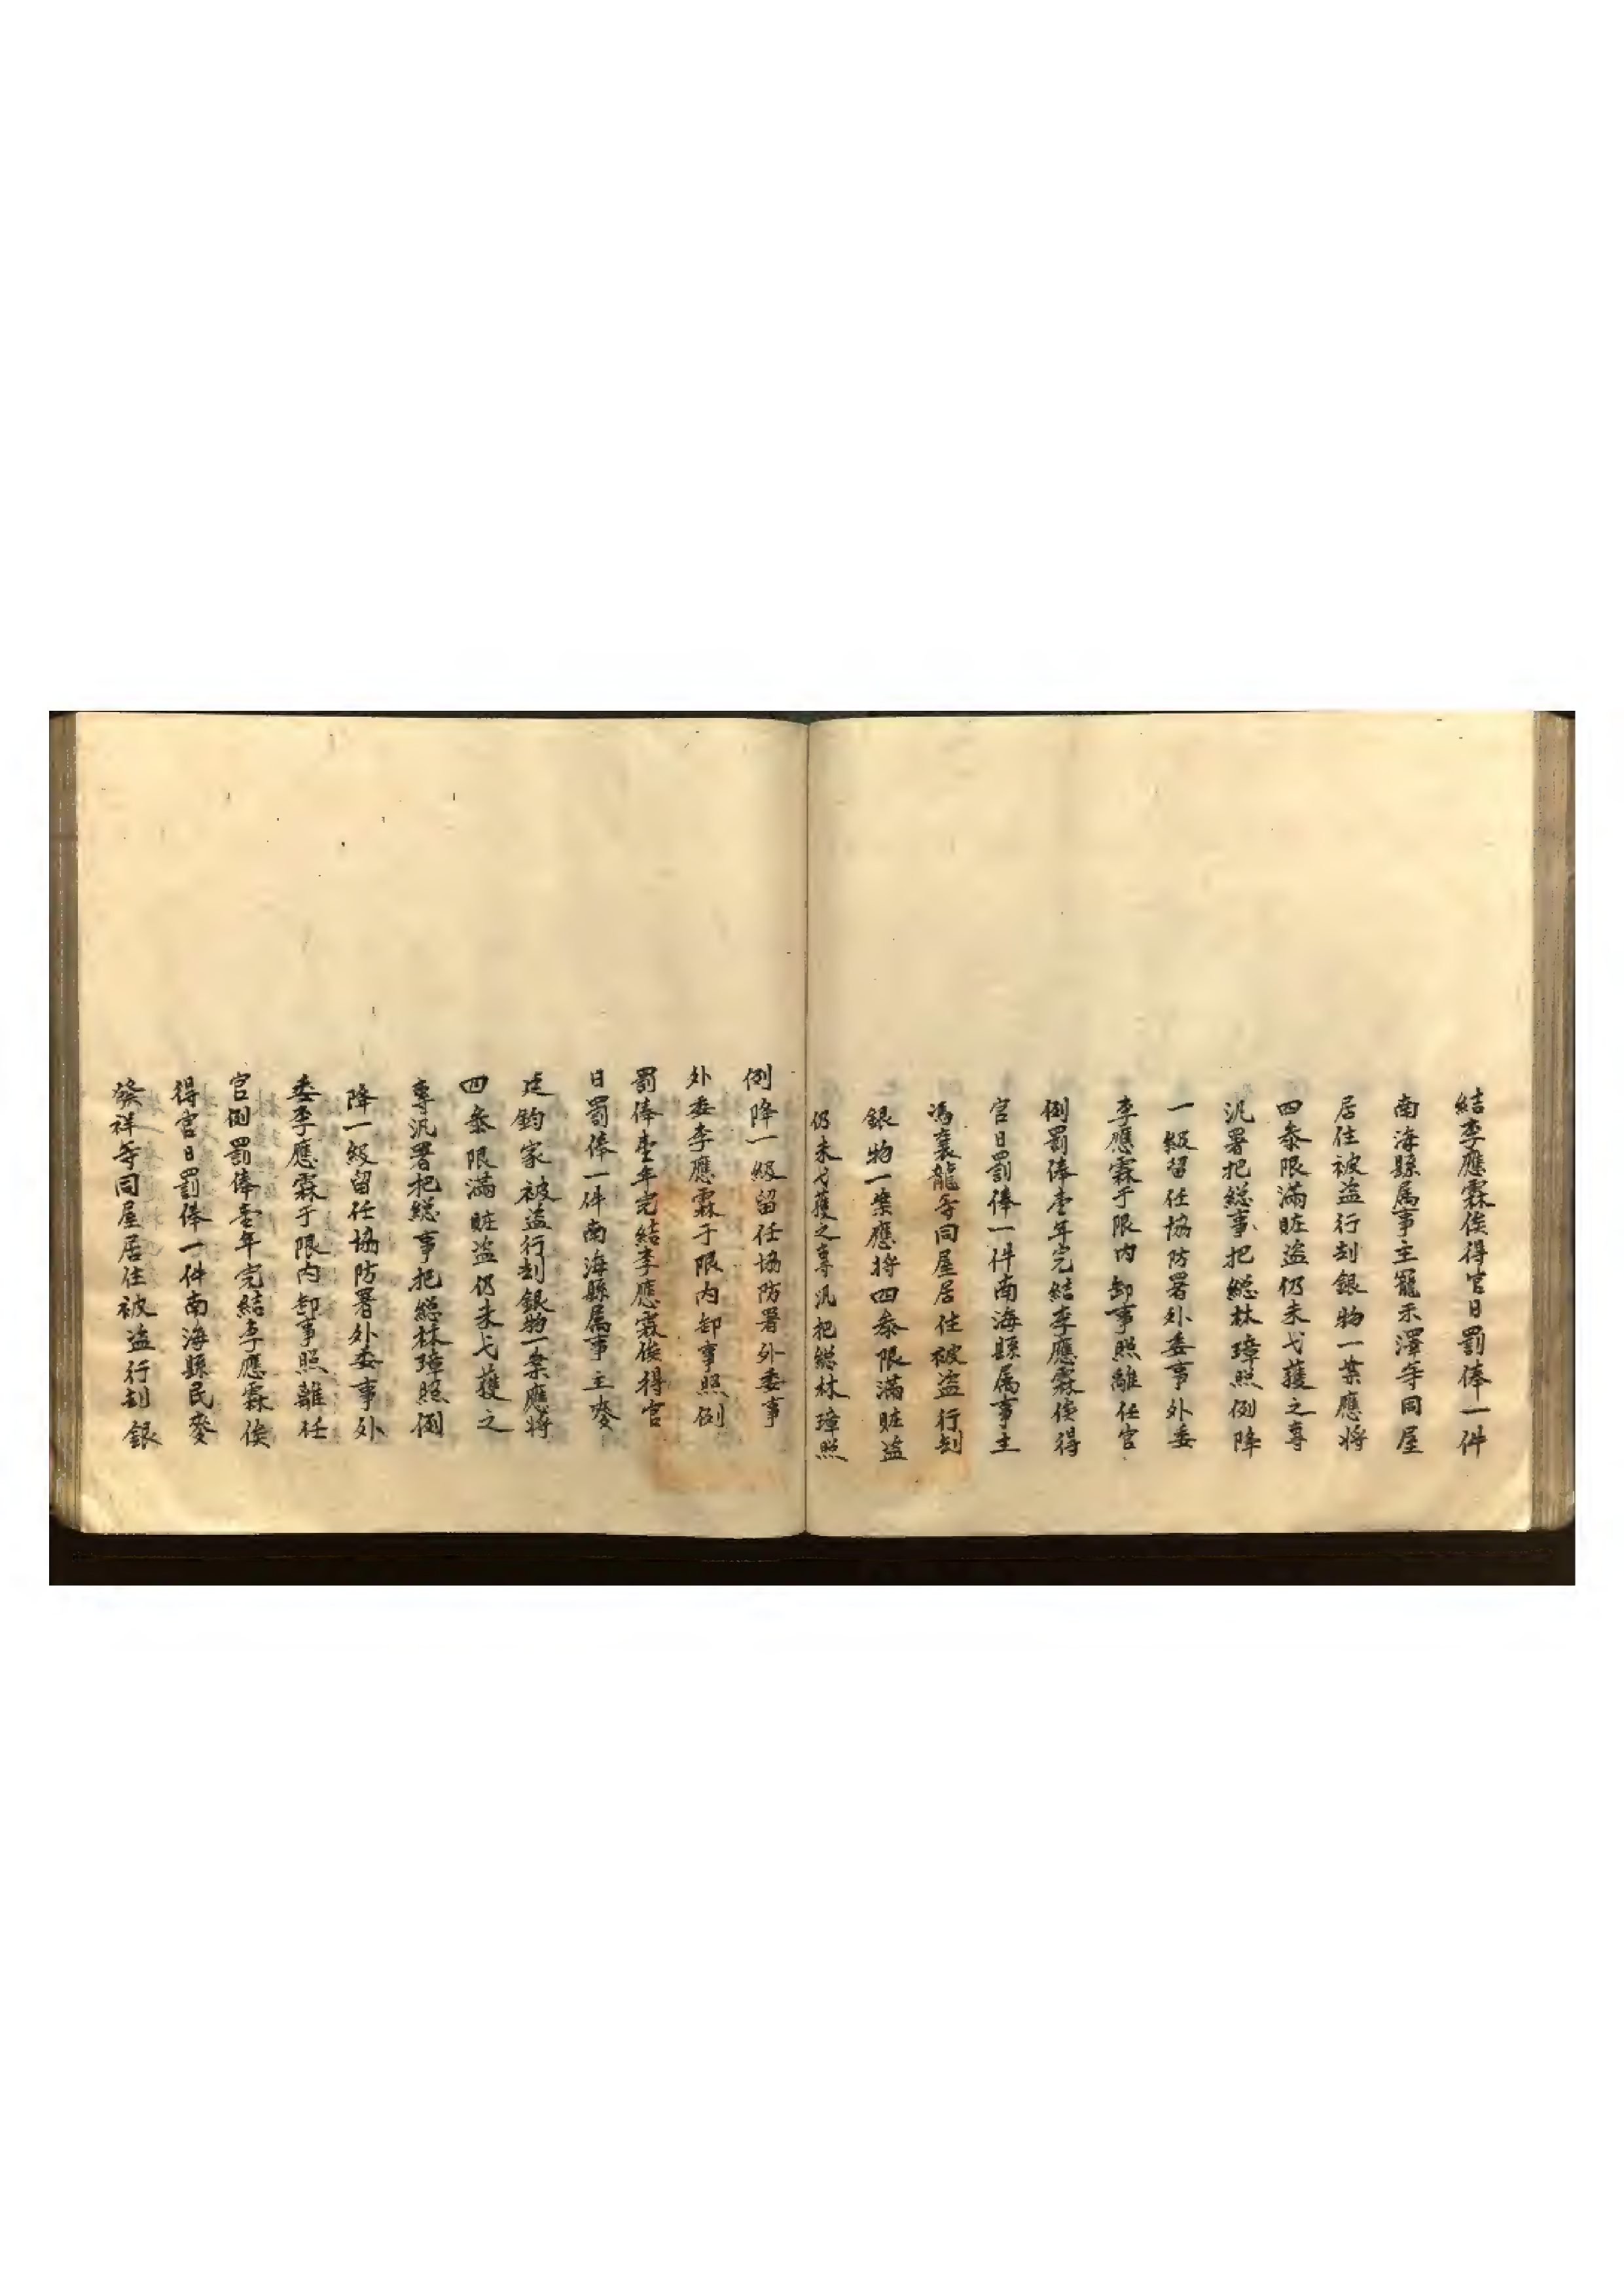 結李應霖俟得官日罰俸一件
南海縣属事主寵禾澤等同屋
居住被盗行刦銀物一案應将
四叅限滿賍盗仍未弋獲之專
汛署把総事把総林璋照例降
一級留任協防署外委事外委
李應霖于限内卸事照離任官
例罰俸壹年完結李應霖俟得
官日罰俸一件南海縣属事主
馮襄龍等同屋居住被盗行刦
銀物一案應将四叅限滿賍盗
仍未弋獲之專汛把総林璋照
例降一級留任協防署外委事
外委李應霖于限内卸事照例
罰俸壹年完結李應霖俟得官
日罰俸一件南海縣属事主麥
廷鈞家被盗行刦銀物一案應将
四叅限滿賍盗仍未弋獲之
專汛署把総事把総林璋照例
降一級留任協防署外委事外
委李應霖于限内卸事照離任
官例罰俸壹年完結李應霖俟
得官日罰俸一件南海縣民麥
發祥等同屋居住被盗行刦銀